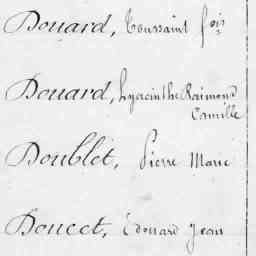 Douard, Toussaint fois
Douard, Hyacinthe Raimond
Camille
Doublet, Pierre Marie
Doucet, Edouard Jean